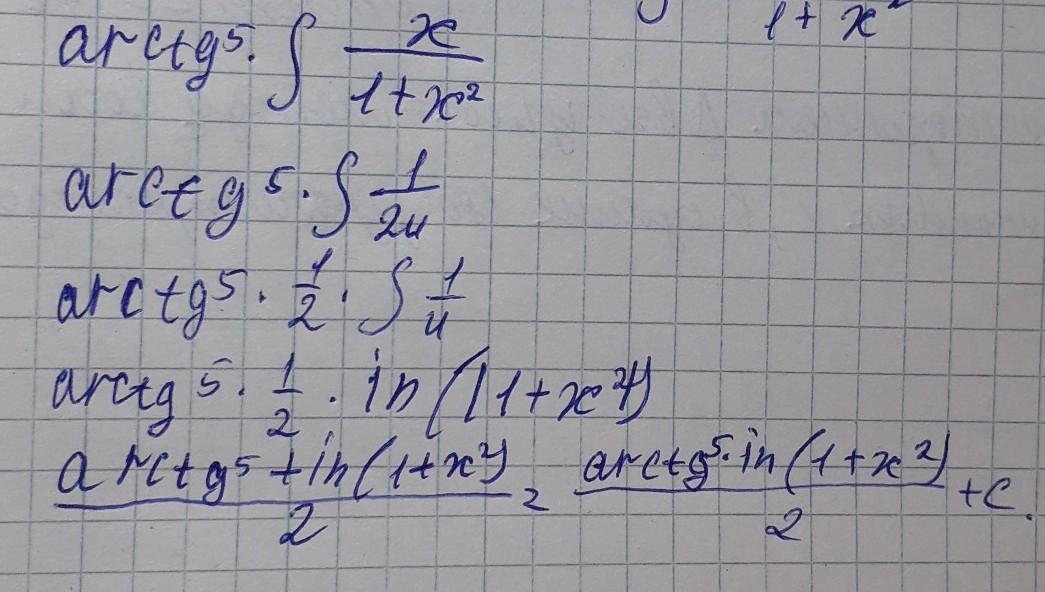 1 + x²
arctg⁵ · ∫ x / (1+x²)
arctg⁵ · ∫ 1 / 2u
arctg⁵ · 1/2 · ∫ 1/u
arctg⁵ · 1/2 · ln (|1+x²|)
arctg⁵ + ln(1+x²) / 2 = arctg⁵ · ln(1+x²) / 2 + c.